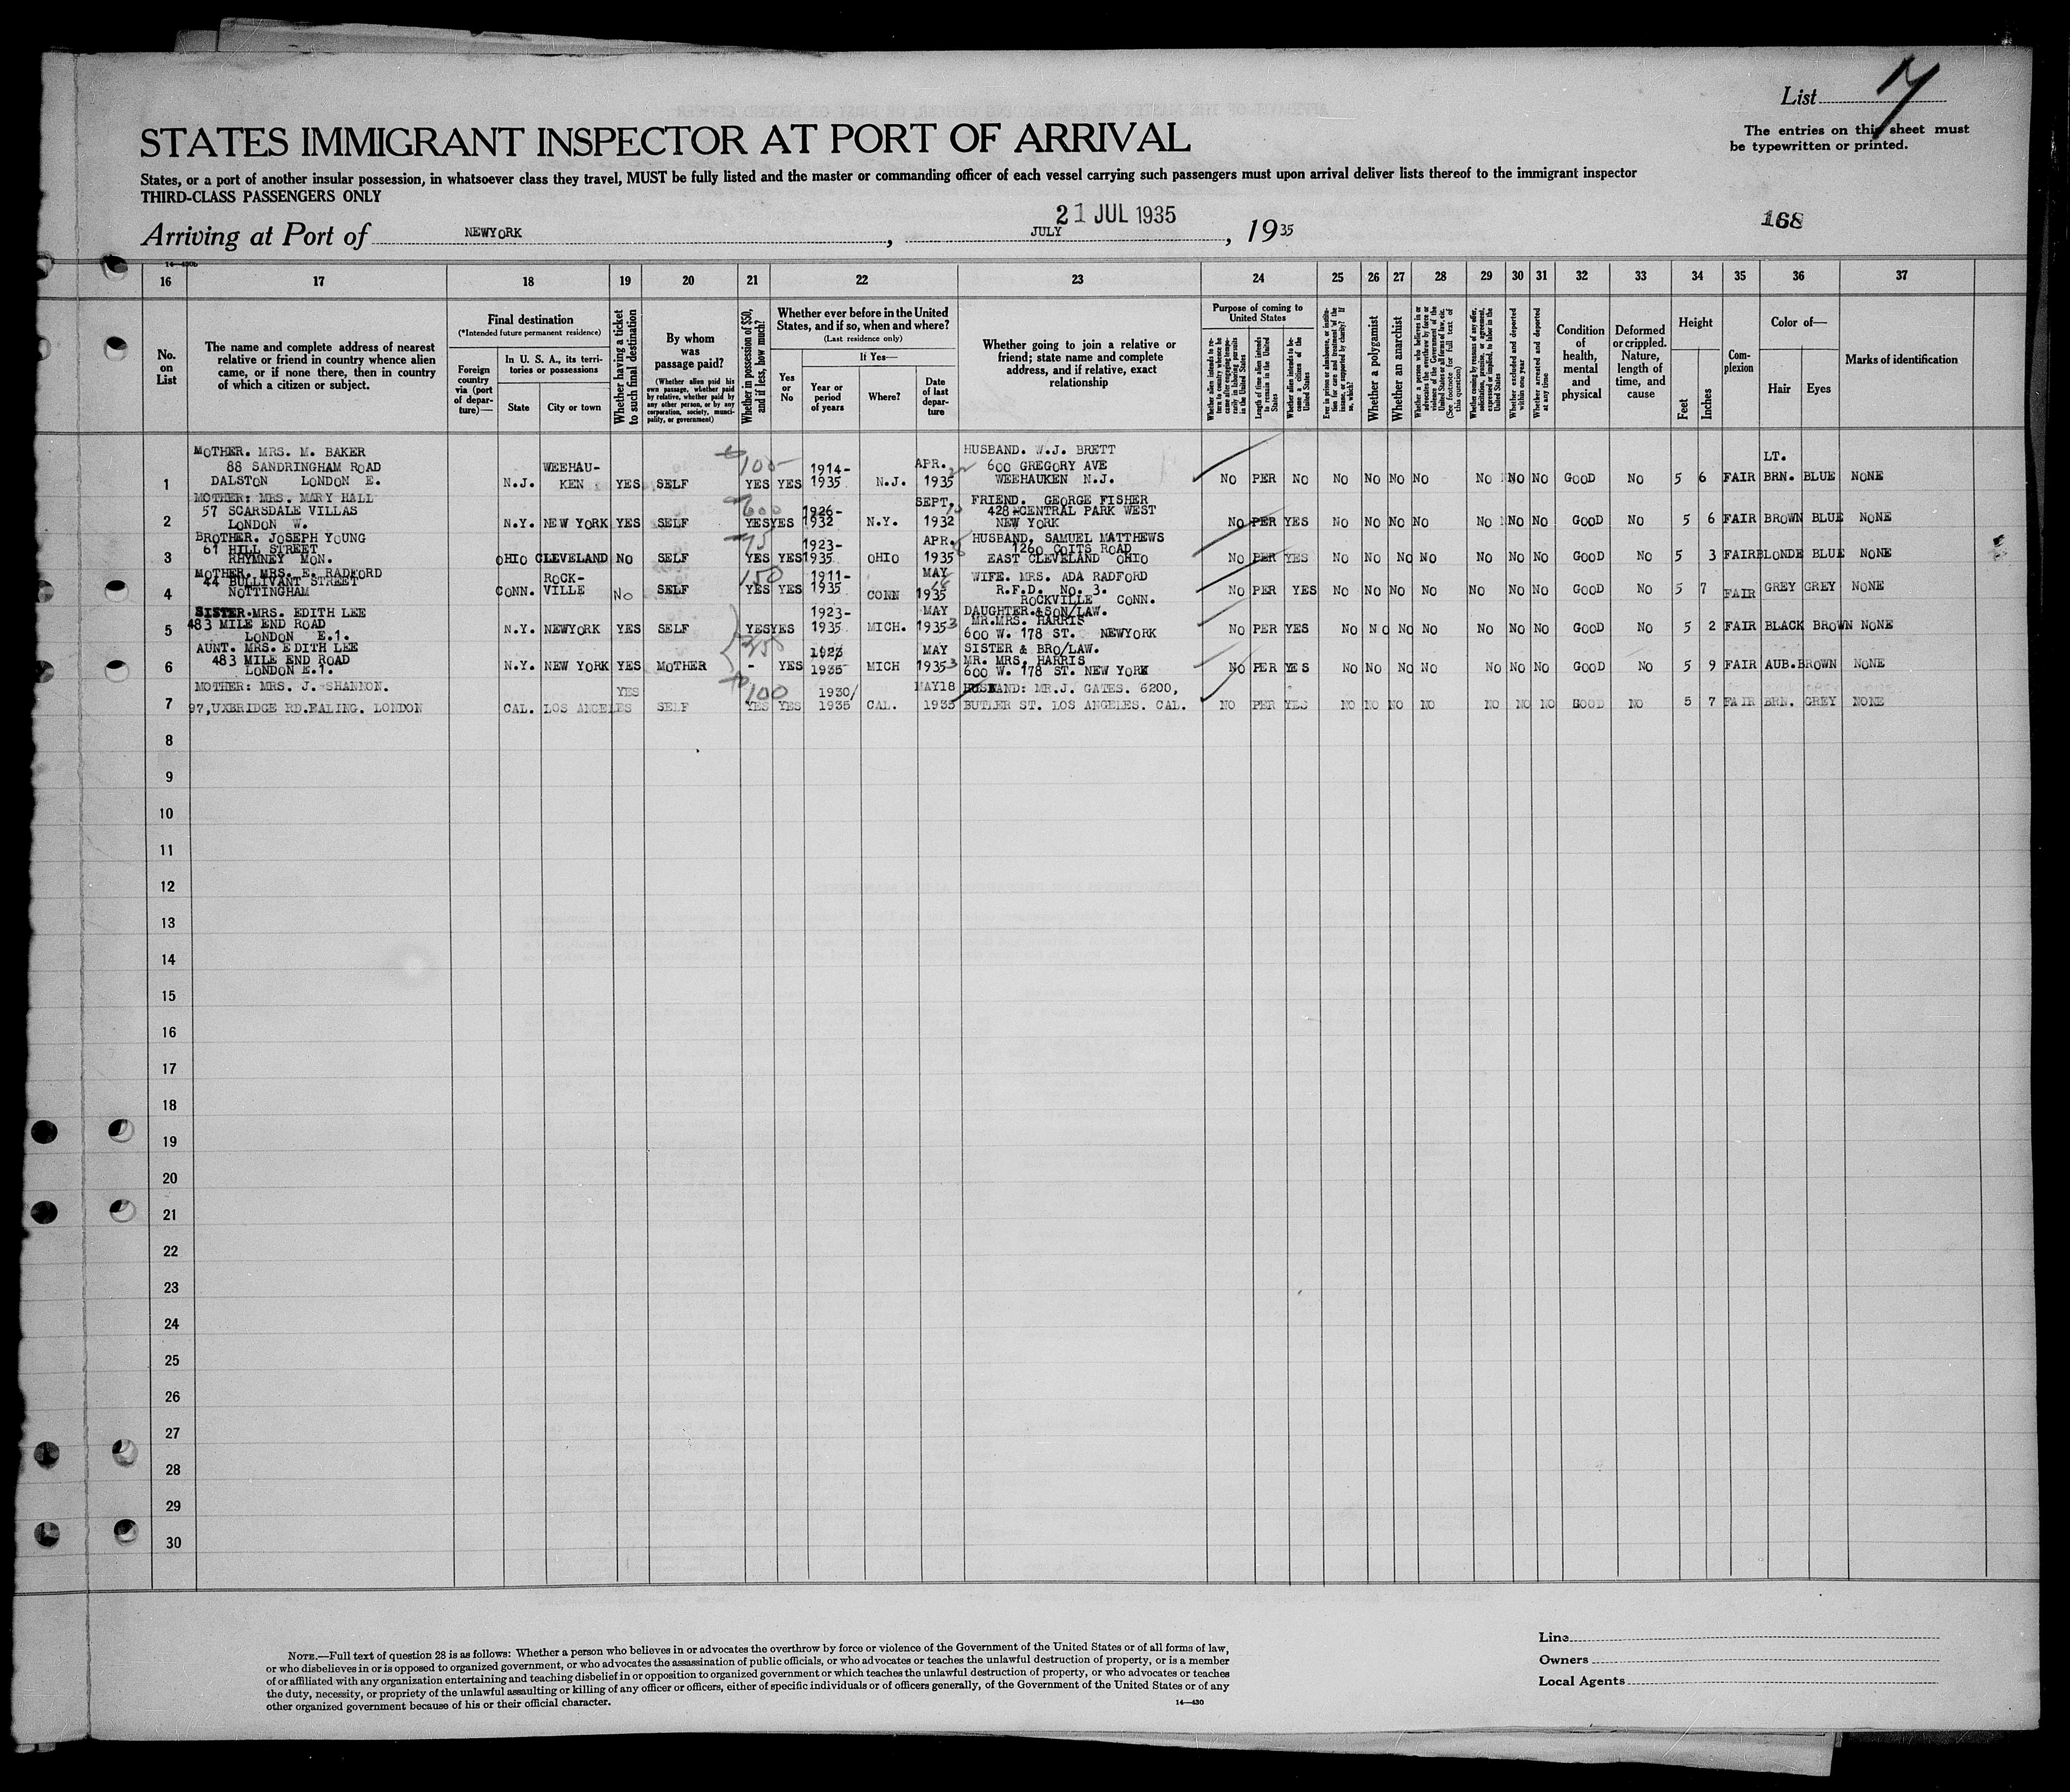 List 17
The entries on this sheet must
be typewritten or printed.
STATES IMMIGRANT INSPECTOR AT PORT OF ARRIVAL
States, or a port of another insular possession, in whatsoever class they travel, MUST be fully listed and the master or commanding officer of each vessel carrying such passengers must upon arrival deliver lists thereof to the immigrant inspector
THIRD-CLASS PASSENGERS ONLY
21 JUL 1935
168
Arriving at Port of NEWYORK, JULY, 1935
16 17 18 19 20 21 22 23 24 25 26 27 28 29 30 31 32 33 34 35 36 37
No. on List
The name and complete address of nearest
relative or friend in country whence alien
came, or if none there, then in country
of which a citizen or subject.
Final destination
(*Intended future permanent residence)
Foreign country via (port of departure)—
In U. S. A., its territories or possessions
State
City or town
Whether having a ticket to such final destination
By whom was passage paid?
(Whether alien paid his own passage, whether paid by relative, whether paid by any other person, or by any corporation, society, municipality, or government)
Whether in possession of $50, and if less, how much?
Whether ever before in the United States, and if so, when and where?
(Last residence only)
If Yes—
Yes or No
Year or period of years
Where?
Date of last departure
Whether going to join a relative or
friend; state name and complete
address, and if relative, exact
relationship
Purpose of coming to United States
Whether alien intends to return to country whence he came after engaging temporarily in laboring pursuits in the United States
Length of time alien intends to remain in the United States
Whether alien intends to become a citizen of the United States
Ever in prison or almshouse, or institution for care and treatment of the insane, or supported by charity? If so, which?
Whether a polygamist
Whether an anarchist
(See footnote for full text of this question)
Whether coming by reason of any offer, solicitation, promise, or agreement, expressed or implied, to labor in the United States
Whether excluded and deported within one year
Whether arrested and deported at any time
Condition of health, mental and physical
Deformed or crippled. Nature, length of time, and cause
Height
Feet
Inches
Complexion
Color of—
Hair
Eyes
Marks of identification
1 MOTHER. MRS. M. BAKER
88 SANDRINGHAM ROAD
DALSTON LONDON E.
N.J. WEEHAU-
KEN YES SELF 100 YES YES 1914-
1935 N.J. APR. 1935
HUSBAND. W.J. BRETT
600 GREGORY AVE
WEEHAUKEN N.J.
NO PER NO NO NO NO NO NO NO NO GOOD NO 5 6 FAIR LT. BRN. BLUE NONE
2 MOTHER: MRS. MARY HALL
57 SCARSDALE VILLAS
LONDON W.
N.Y. NEW YORK YES SELF 600 YES YES 1926-
1932 N.Y. SEPT. 1932
FRIEND. GEORGE FISHER
428-CENTRAL PARK WEST
NEW YORK
NO PER YES NO NO NO NO NO NO NO GOOD NO 5 6 FAIR BROWN BLUE NONE
3 BROTHER. JOSEPH YOUNG
61 HILL STREET
RHYMNEY MON.
OHIO CLEVELAND NO SELF 75 YES YES 1923-
1935 OHIO APR. 1935
HUSBAND, SAMUEL MATTHEWS
1260 COITS ROAD
EAST CLEVELAND OHIO
NO PER YES NO NO NO NO NO NO NO GOOD NO 5 3 FAIR BLONDE BLUE NONE
4 MOTHER. MRS. E. RADFORD
44 BULLIVANT STREET
NOTTINGHAM
CONN. ROCK-
VILLE NO SELF 150 YES YES 1911-
1935 CONN MAY 16 1935
WIFE. MRS. ADA RADFORD
R.F.D. No. 3.
ROCKVILLE CONN.
NO PER YES NO NO NO NO NO NO NO GOOD NO 5 7 FAIR GREY GREY NONE
5 SISTER.MRS. EDITH LEE
483 MILE END ROAD
LONDON E.1.
N.Y. NEWYORK YES SELF YES YES 1923-
1935 MICH. MAY 3 1935
DAUGHTER.&SON/LAW.
MR.MRS. HARRIS
600 W. 178 ST. NEWYORK
NO PER YES NO NO NO NO NO NO NO GOOD NO 5 2 FAIR BLACK BROWN NONE
350
6 AUNT. MRS. EDITH LEE
483 MILE END ROAD
LONDON E.1.
N.Y. NEW YORK YES MOTHER - YES
1935 MICH MAY 3 1935
SISTER & BRO/LAW.
MR. MRS. HARRIS
600 W. 178 ST. NEW YORK
NO PER YES NO NO NO NO NO NO NO GOOD NO 5 9 FAIR AUB. BROWN NONE
7 MOTHER: MRS. J. SHANNON.
97,UXBRIDGE RD.EALING. LONDON
CAL. LOS ANGELES YES SELF 100 YES YES 1930/
1935 CAL. MAY18 1935
HUSBAND: MR.J. GATES. 6200,
BUTLER ST. LOS ANGELES. CAL.
NO PER YES NO NO NO NO NO NO NO GOOD NO 5 7 FAIR BRN. GREY NONE
8
9
10
11
12
13
14
15
16
17
18
19
20
21
22
23
24
25
26
27
28
29
30
NOTE.—Full text of question 28 is as follows: Whether a person who believes in or advocates the overthrow by force or violence of the Government of the United States or of all forms of law,
or who disbelieves in or is opposed to organized government, or who advocates the assassination of public officials, or who advocates or teaches the unlawful destruction of property, or is a member
of or affiliated with any organization entertaining and teaching disbelief in or opposition to organized government or which teaches the unlawful destruction of property, or who advocates or teaches
the duty, necessity, or propriety of the unlawful assaulting or killing of any officer or officers, either of specific individuals or of officers generally, of the Government of the United States or of any
other organized government because of his or their official character.
14—430
Line
Owners
Local Agents